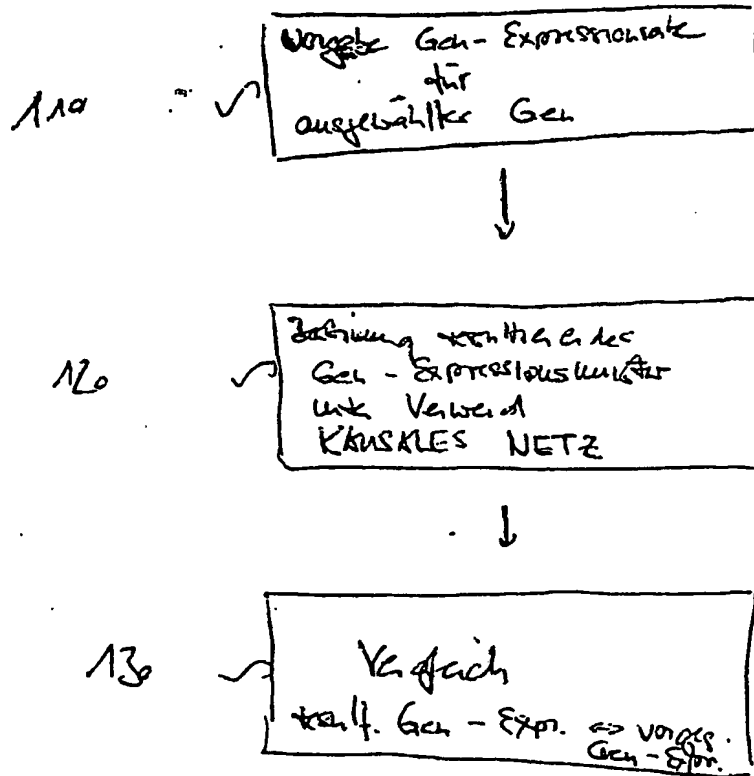 110
Vorgabe Gen-Expressionsrate
für
ausgewähltes Gen
120
resultierendes
Gen - Expressionsmuster
unter Verwend
KAUSALES NETZ
130
Vergleich
result. Gen - Expr. <=> vorgeg.
Gen - Expr.